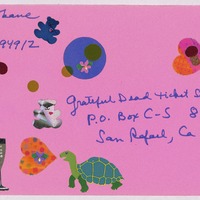 94912
Grateful Dead Ticket S
P.O. Box C-S 8
San Rafael, Ca